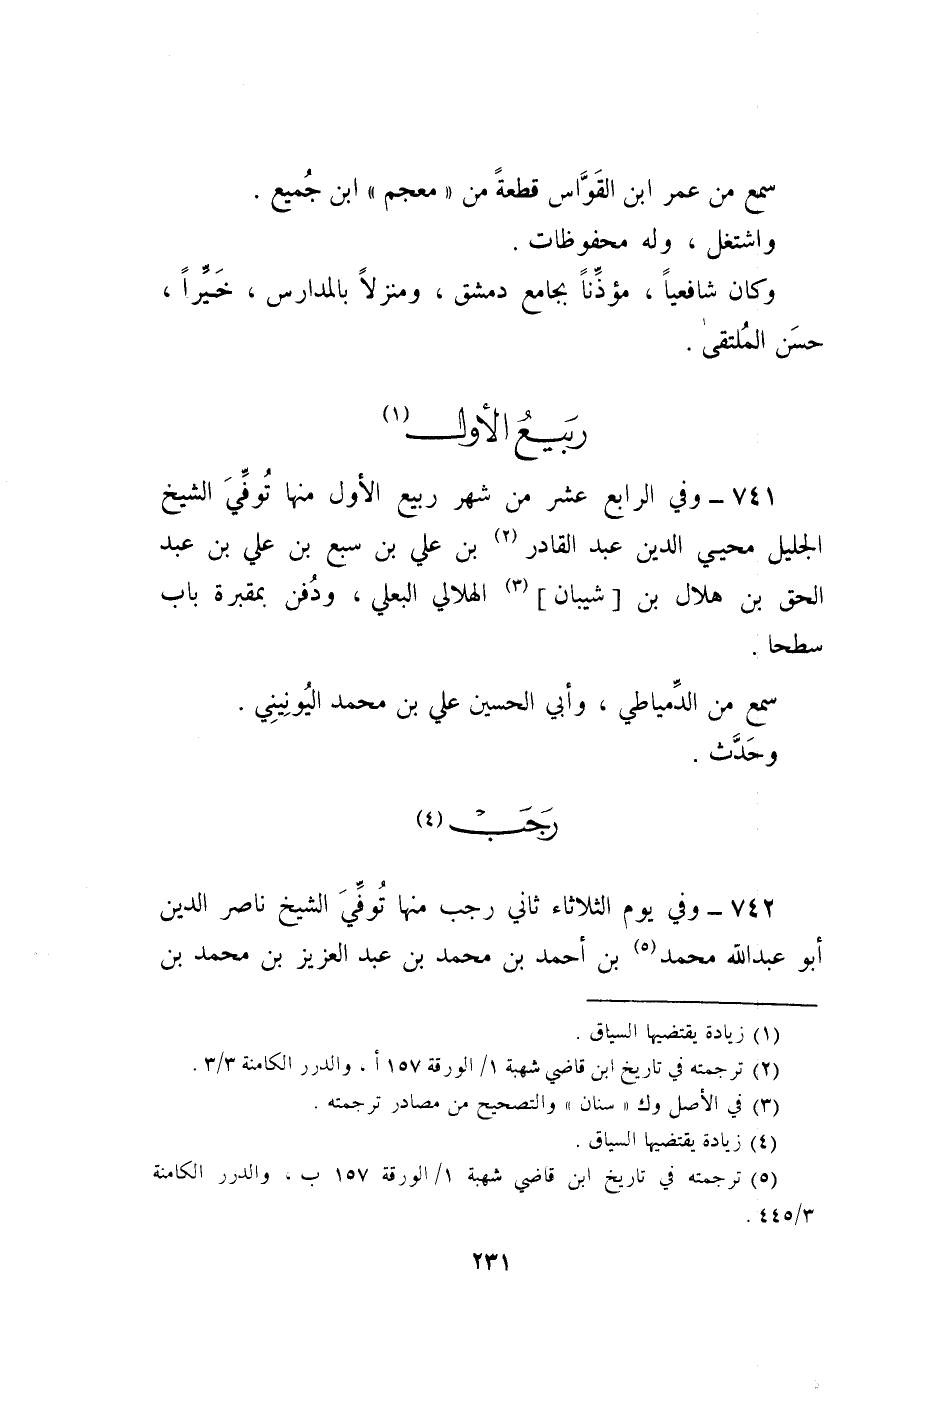 سمع من عمر ابن القَوَّاس قطعةً من « معجم » ابن جُميع .
واشتغل ، وله محفوظات .
وكان شافعياً ، مؤذِّناً بجامع دمشق ، ومنزلاً بالمدارس ، خَيِّراً ،
حسَن المُلتقىٰ .
رَبيعُ الأول (١)
٧٤١ – وفي الرابع عشر من شهر ربيع الأول منها تُوفِّيَ الشيخ
الجليل محيي الدين عبد القادر (٢) بن علي بن سبع بن علي بن عبد
الحق بن هلال بن [ شيبان ] (٣) الهلالي البعلي ، ودُفن بمقبرة باب
سطحا .
سمع من الدِّمياطي ، وأبي الحسين علي بن محمد اليُونِيني .
وحَدَّث .
رَجَب (٤)
٧٤٢ – وفي يوم الثلاثاء ثاني رجب منها تُوفِّيَ الشيخ ناصر الدين
أبو عبدالله محمد (٥) بن أحمد بن محمد بن عبد العزيز بن محمد بن
(١) زيادة يقتضيها السياق .
(٢) ترجمته في تاريخ ابن قاضي شهبة ١/ الورقة ١٥٧ أ ، والدرر الكامنة ٣/٣ .
(٣) في الأصل وك « سنان » والتصحيح من مصادر ترجمته .
(٤) زيادة يقتضيها السياق .
(٥) ترجمته في تاريخ ابن قاضي شهبة ١/ الورقة ١٥٧ ب ، والدرر الكامنة
٤٤٥/٣ .
٢٣١